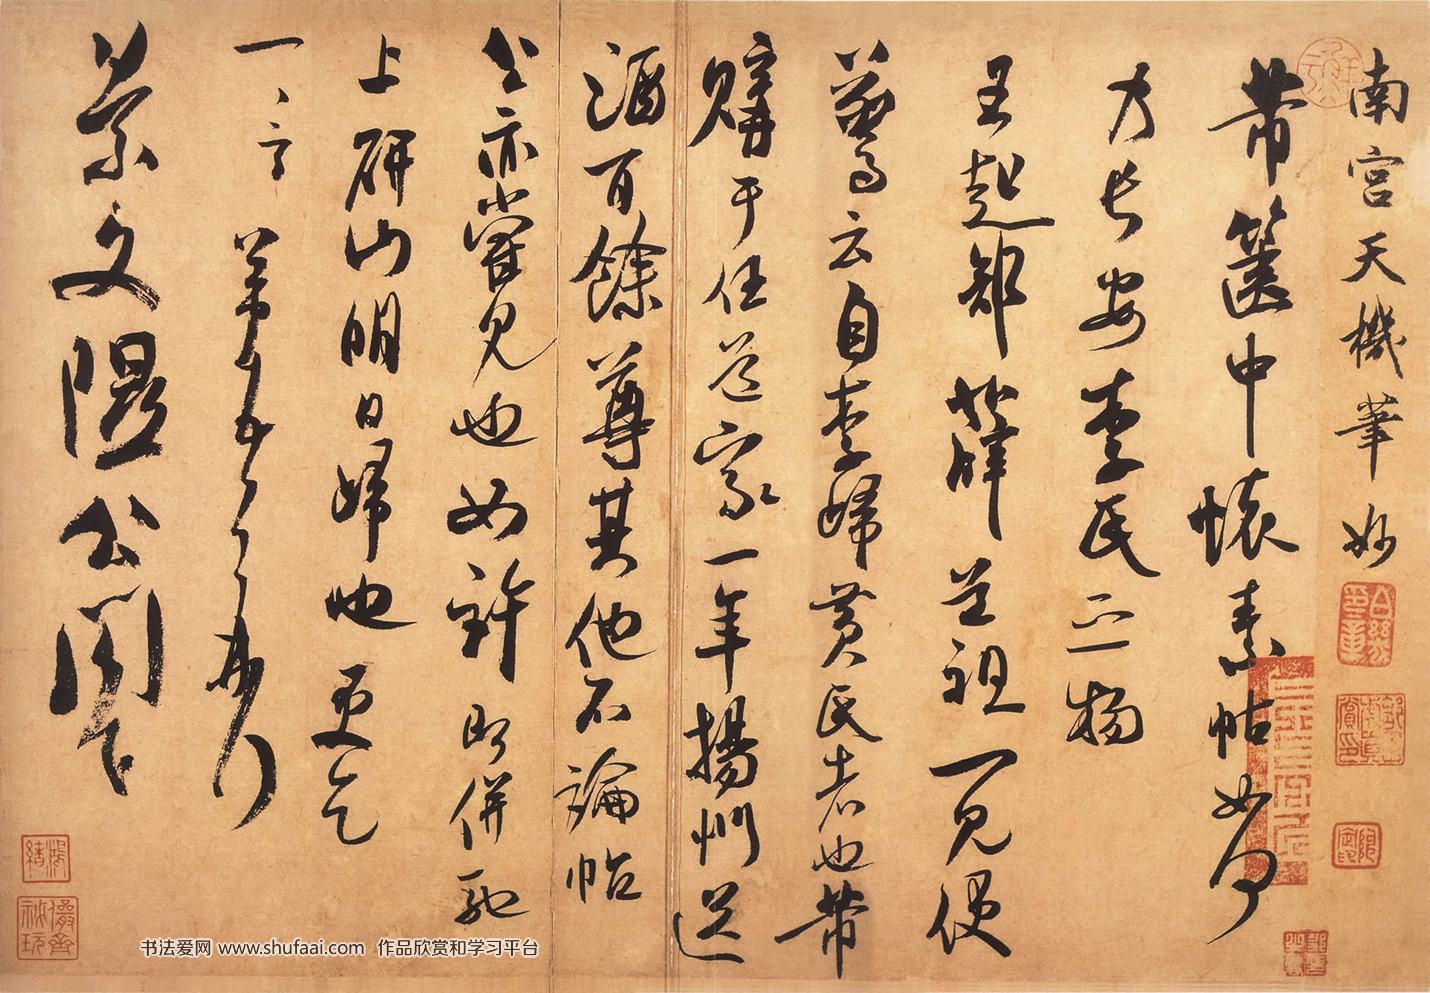 南宮天機筆妙
芾篋中懷素帖如何
乃長安李氏之物
王起部薛道祖一見便
驚云自李歸黃氏者也芾
購于任道家一年揚州送
酒百餘尊其他不論帖
公亦嘗見也如許即併馳
上研山明日歸也更乞
一言芾頓首再拜
景文隰公閤下
书法爱网 www.shufaai.com 作品欣赏和学习平台